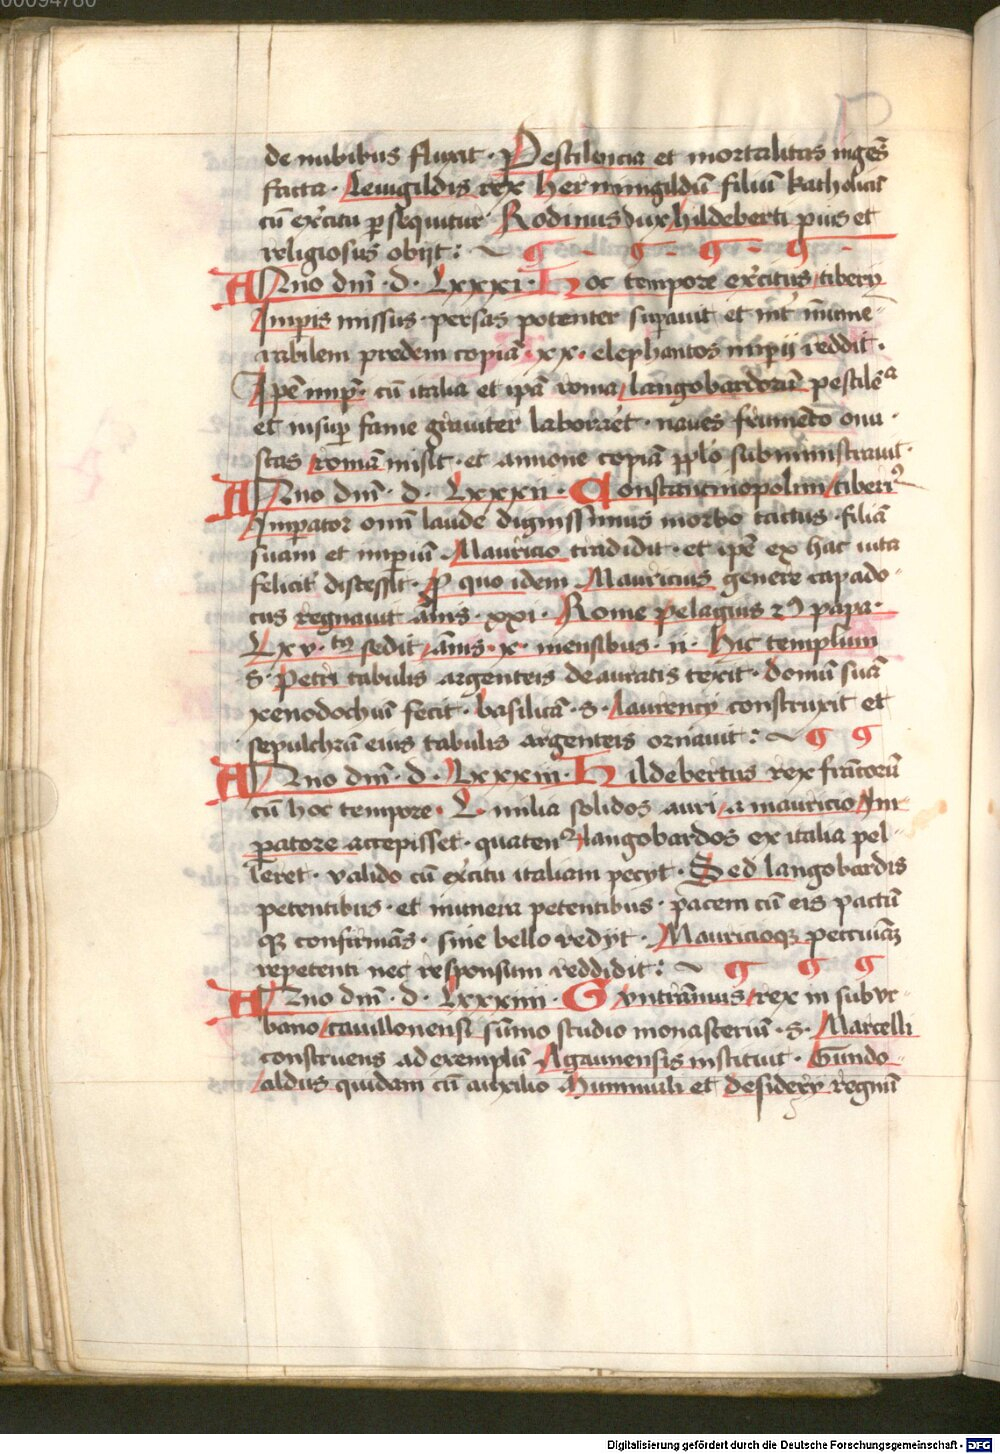 00094780
de nubibus fluxit · Pestilencia et mortalitas inge͂s
facta · Lewigildis rex Herminigildū filiū katholicū
cū ex̄citu ꝑsequitur Rodinus dux hildeberti pius et
religiosus obijt : ~ ¶ - ¶ - ¶ - ¶ -
Anno dm̄ · d · Lxxxi · Hoc tempore ex̄citus tiberij
Imꝑis missus · persas potenter suꝑauit et int̄ inūme-
rabilem predem copiā · xx · elephantos imꝑij reddit ·
Ipe͂ imꝑ · cū italia et ipā roma langobardorū pestile͂ᵃ
et insuꝑ fame grauiter laboraret · naues frume͂to onu-
stas romā misit · et annone copiā pplo subministrauit ·
Anno dm̄ · d · Lxxxii · Constantinopolim tiberiꝰ
Imꝑator omī laude dignissimus morbo tactus · filiā
suam et imꝑiū Mauricio tradidit · et ipe͂ ex hac uita
felicit̄ discessit · P̄ quo idem Mauricius genere capado-
cus regnauit ān̄is · xxi · Rome pelagius 2ꝰ papa ·
Lxv · tꝰ sedit ān̄is · x · mensibus · ii · Hic templum
S · Petri tabulis argenteis deauratis texit · domū suā
xenodochiū fecit · basilicā · S · laurencij construxit et
sepulchrū eius tabulis argenteis ornauit : ~ ¶ ¶
Anno dm̄ · d · Lxxxiii · Hildebertus rex francorū
cū hoc tempore · L · milia solidos auri a mauricio Im-
ꝑatore accepisset · quatenꝰ langobardos ex italia pel-
leret · valido cū ex̄citu italiam pecijt · Sed langobardis
petentibus · et munera petentibus · pacem cū eis pactū
qꝫ confirmās · sine bello redijt · Mauricioqꝫ peccuiāꝫ
repetenti nec responsum reddidit : ~ ¶ ¶ ¶
Anno dm̄ · d · Lxxxiiii · Guntramus rex in subvr-
bano cauillonensi sūmo studio monasteriū · S · Marcelli
construens ad exemplū Agaunensis instituit · Gundo-
aldus quidam cū auxilio Mummuli et desiderij regnū
Digitalisierung gefördert durch die Deutsche Forschungsgemeinschaft - DFG